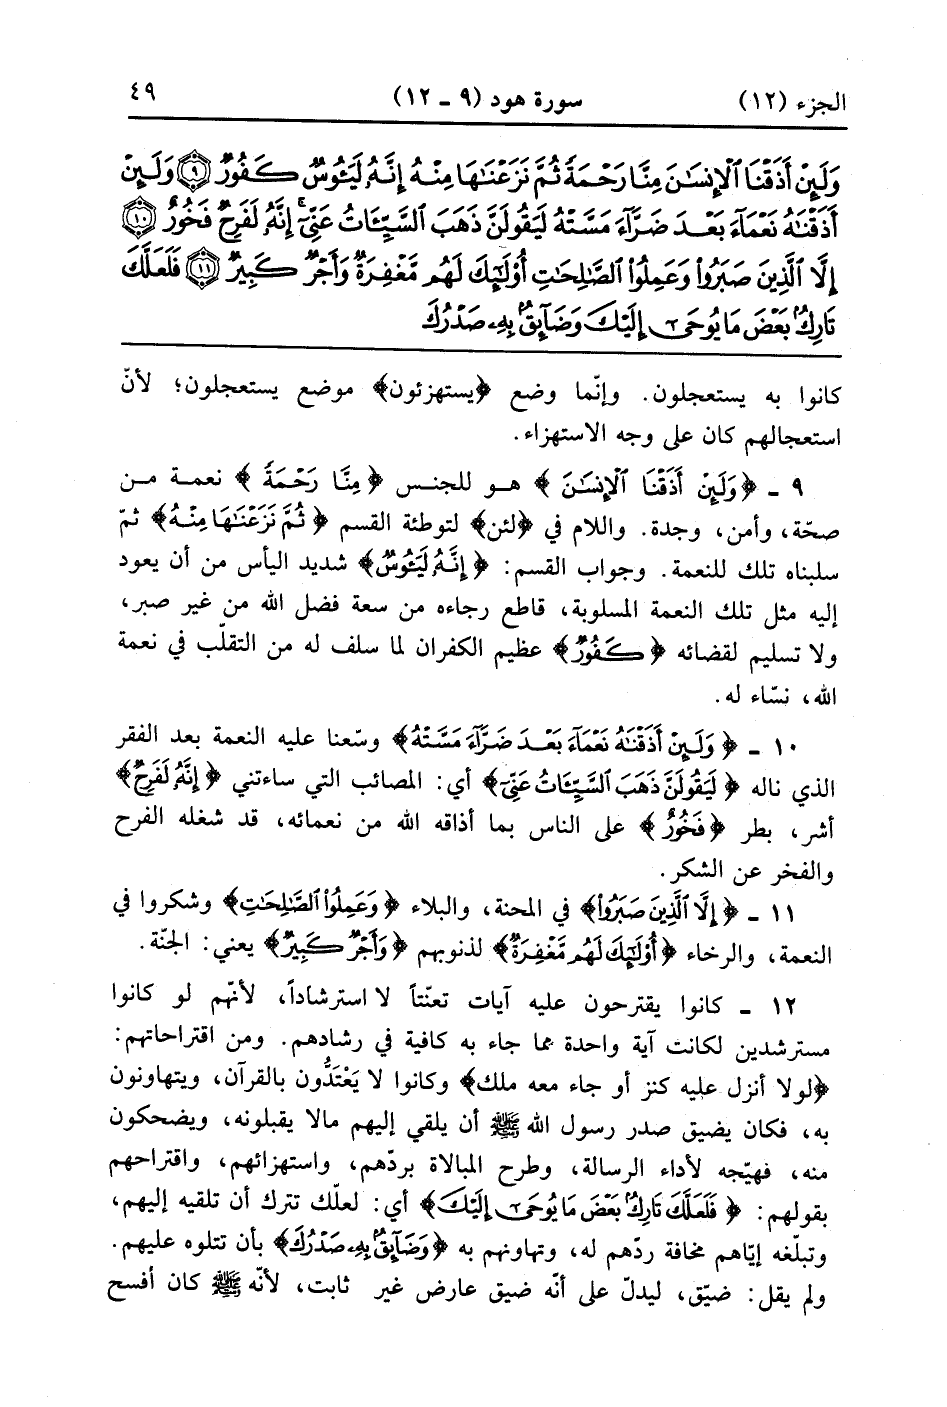 الجزء (١٢) سورة هود (٩ - ١٢) ٤٩
وَلَئِنْ أَذَقْنَا ٱلْإِنسَـٰنَ مِنَّا رَحْمَةً ثُمَّ نَزَعْنَـٰهَا مِنْهُ إِنَّهُۥ لَيَـُٔوسٌ كَفُورٌ ٩ وَلَئِنْ
أَذَقْنَـٰهُ نَعْمَآءَ بَعْدَ ضَرَّآءَ مَسَّتْهُ لَيَقُولَنَّ ذَهَبَ ٱلسَّيِّـَٔاتُ عَنِّىٓ ۚ إِنَّهُۥ لَفَرِحٌ فَخُورٌ ١٠
إِلَّا ٱلَّذِينَ صَبَرُوا۟ وَعَمِلُوا۟ ٱلصَّـٰلِحَـٰتِ أُو۟لَـٰٓئِكَ لَهُم مَّغْفِرَةٌ وَأَجْرٌ كَبِيرٌ ١١ فَلَعَلَّكَ
تَارِكٌۢ بَعْضَ مَا يُوحَىٰٓ إِلَيْكَ وَضَآئِقٌۢ بِهِۦ صَدْرُكَ
كانوا به يستعجلون. وإنّما وضع ﴿يستهزئون﴾ موضع يستعجلون؛ لأنّ
استعجالهم كان على وجه الاستهزاء.
٩ - ﴿وَلَئِنْ أَذَقْنَا ٱلْإِنسَـٰنَ﴾ هو للجنس ﴿مِنَّا رَحْمَةً﴾ نعمة من
صحّة، وأمن، وجدة. واللام في ﴿لئن﴾ لتوطئة القسم ﴿ثُمَّ نَزَعْنَـٰهَا مِنْهُ﴾ ثمّ
سلبناه تلك للنعمة. وجواب القسم: ﴿إِنَّهُۥ لَيَـُٔوسٌ﴾ شديد اليأس من أن يعود
إليه مثل تلك النعمة المسلوبة، قاطع رجاءه من سعة فضل الله من غير صبر،
ولا تسليم لقضائه ﴿كَفُورٌ﴾ عظيم الكفران لما سلف له من التقلّب في نعمة
الله، نسّاء له.
١٠ - ﴿وَلَئِنْ أَذَقْنَـٰهُ نَعْمَآءَ بَعْدَ ضَرَّآءَ مَسَّتْهُ﴾ وسّعنا عليه النعمة بعد الفقر
الذي ناله ﴿لَيَقُولَنَّ ذَهَبَ ٱلسَّيِّـَٔاتُ عَنِّىٓ﴾ أي: المصائب التي ساءتني ﴿إِنَّهُۥ لَفَرِحٌ﴾
أشر، بطر ﴿فَخُورٌ﴾ على الناس بما أذاقه الله من نعمائه، قد شغله الفرح
والفخر عن الشكر.
١١ - ﴿إِلَّا ٱلَّذِينَ صَبَرُوا۟﴾ في المحنة، والبلاء ﴿وَعَمِلُوا۟ ٱلصَّـٰلِحَـٰتِ﴾ وشكروا في
النعمة، والرخاء ﴿أُو۟لَـٰٓئِكَ لَهُم مَّغْفِرَةٌ﴾ لذنوبهم ﴿وَأَجْرٌ كَبِيرٌ﴾ يعني: الجنّة.
١٢ - كانوا يقترحون عليه آيات تعنّتاً لا استرشاداً، لأنّهم لو كانوا
مسترشدين لكانت آية واحدة مما جاء به كافية في رشادهم. ومن اقتراحاتهم:
﴿لولا أنزل عليه كنز أو جاء معه ملك﴾ وكانوا لا يَعْتَدُّون بالقرآن، ويتهاونون
به، فكان يضيق صدر رسول الله ﷺ أن يلقي إليهم مالا يقبلونه، ويضحكون
منه، فهيّجه لأداء الرسالة، وطرح المبالاة بردّهم، واستهزائهم، واقتراحهم
بقولهم: ﴿فَلَعَلَّكَ تَارِكٌۢ بَعْضَ مَا يُوحَىٰٓ إِلَيْكَ﴾ أي: لعلّك تترك أن تلقيه إليهم،
وتبلّغه إيّاهم مخافة ردّهم له، وتهاونهم به ﴿وَضَآئِقٌۢ بِهِۦ صَدْرُكَ﴾ بأن تتلوه عليهم.
ولم يقل: ضيّق، ليدلّ على أنّه ضيق عارض غير ثابت، لأنّه ﷺ كان أفسح